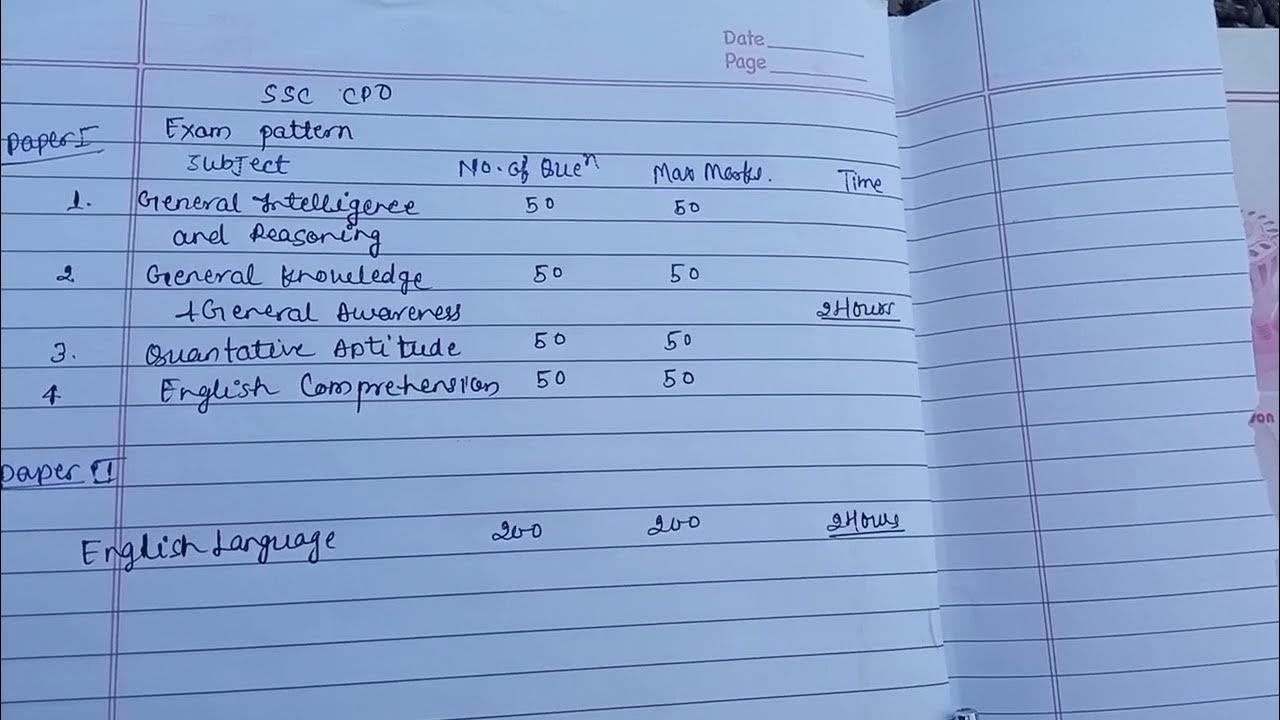 Date
Page
SSC CPO
Paper I Exam pattern
Subject No. of Queⁿ Max Marks. Time
1. General Intelligence 50 50
and Reasoning
2 General Knowledge 50 50
+General Awareness 2Hours
3. Quantative Aptitude 50 50
4 English Comprehension 50 50
Paper II
English Language 200 200 2Hours
on